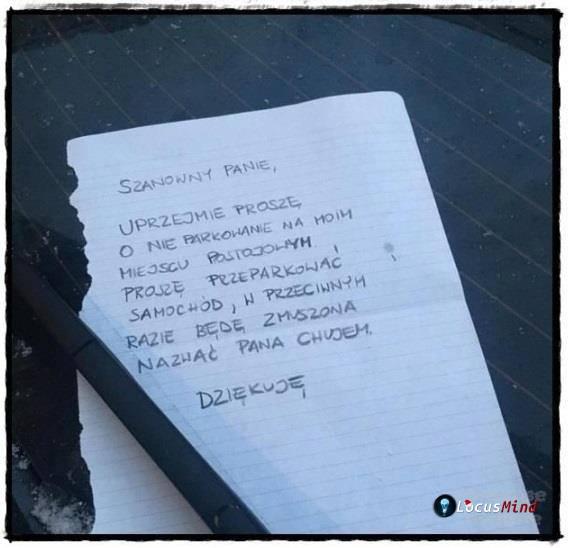 SZANOWNY PANIE,
UPRZEJMIE PROSZĘ
O NIE PARKOWANIE NA MOIM
MIEJSCU POSTOJOWYM I
PROSZĘ PRZEPARKOWAĆ
SAMOCHÓD, W PRZECIWNYM
RAZIE BĘDĘ ZMUSZONA
NAZWAĆ PANA CHUJEM.
DZIĘKUJĘ
LocusMind